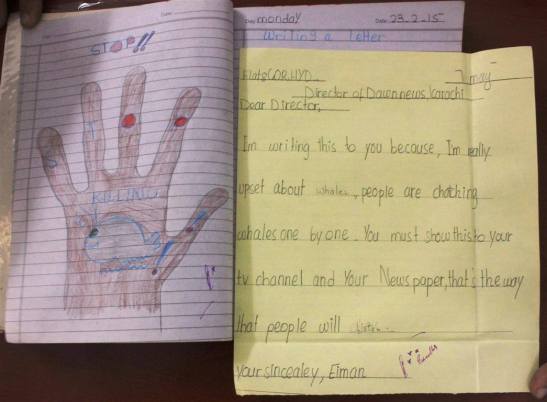 STOP!!
S
T
KILLING
Day monday Date: 23-2-15
Writing a letter
7 may
Director of Dawn news, Karachi
Dear Director,
Im writing this to you because, I'm really
upset about whales, people are chatching
whales one by one. You must show this to your
tv channel and Your News paper, that's the way
that people will listen.
Your sincealey, Eiman